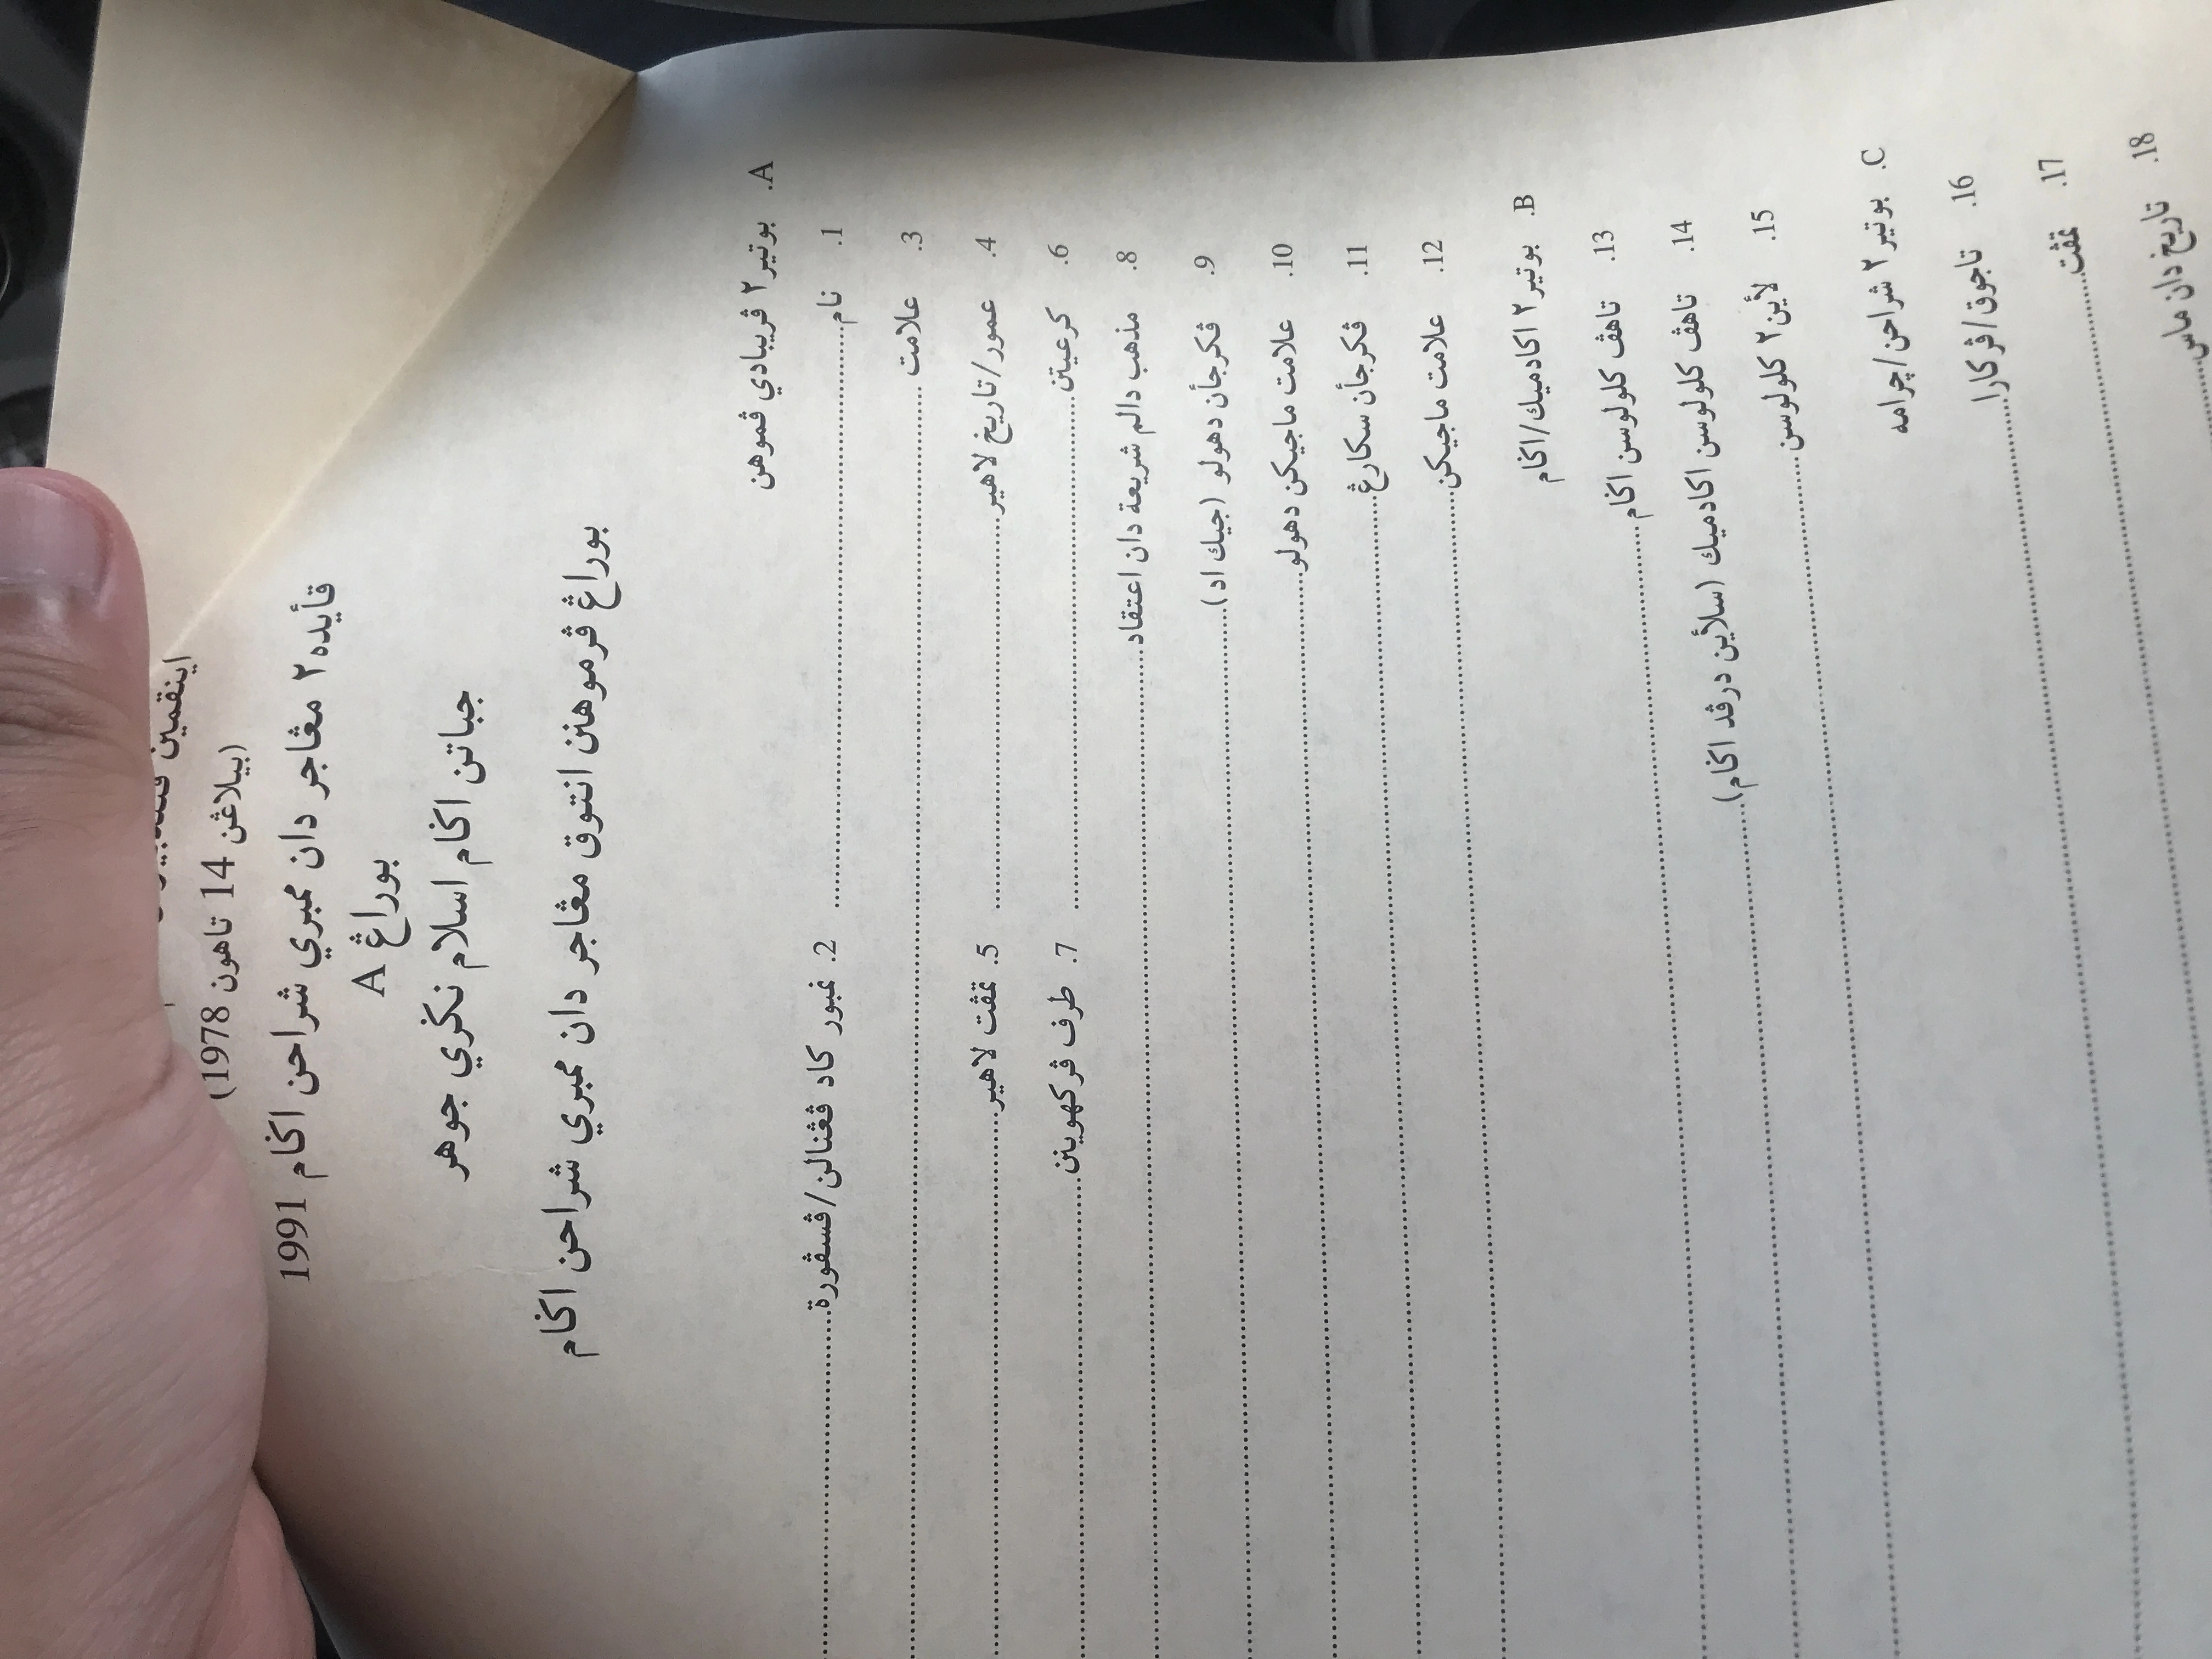 اينقمين
(بيلاڠن 14 تاهون 1978)
قأيده٢ مڠاجر دان ممبري شراحن اݢام 1991
بوراڠ A
جباتن اݢام اسلام نݢري جوهر
بوراڠ ڤرموهنن انتوق مڠاجر دان ممبري شراحن اݢام
A. بوتير٢ ڤريبادي ڤموهن
1. نام.................... 2. نمبور كاد ڤڠنالن/ڤسڤورة....................
3. علامت ....................
4. عمور/تاريخ لاهير.................... 5. تمڤت لاهير....................
6. كرعيتن.................... 7. طرف ڤركهوينن....................
8. مذهب دالم شريعة دان اعتقاد....................
9. ڤكرجأن دهولو (جيك اد)....................
10. علامت ماجيكن دهولو....................
11. ڤكرجأن سكارڠ....................
12. علامت ماجيكن....................
B. بوتير٢ اكادميك/اݢام
13. تاهڤ كلولوسن اݢام....................
14. تاهڤ كلولوسن اكادميك (سلأين درڤد اݢام)....................
15. لأين٢ كلولوسن....................
C. بوتير٢ شراحن/چرامه
16. تاجوق/ڤركارا....................
17. تمڤت....................
18. تاريخ دان ماس....................